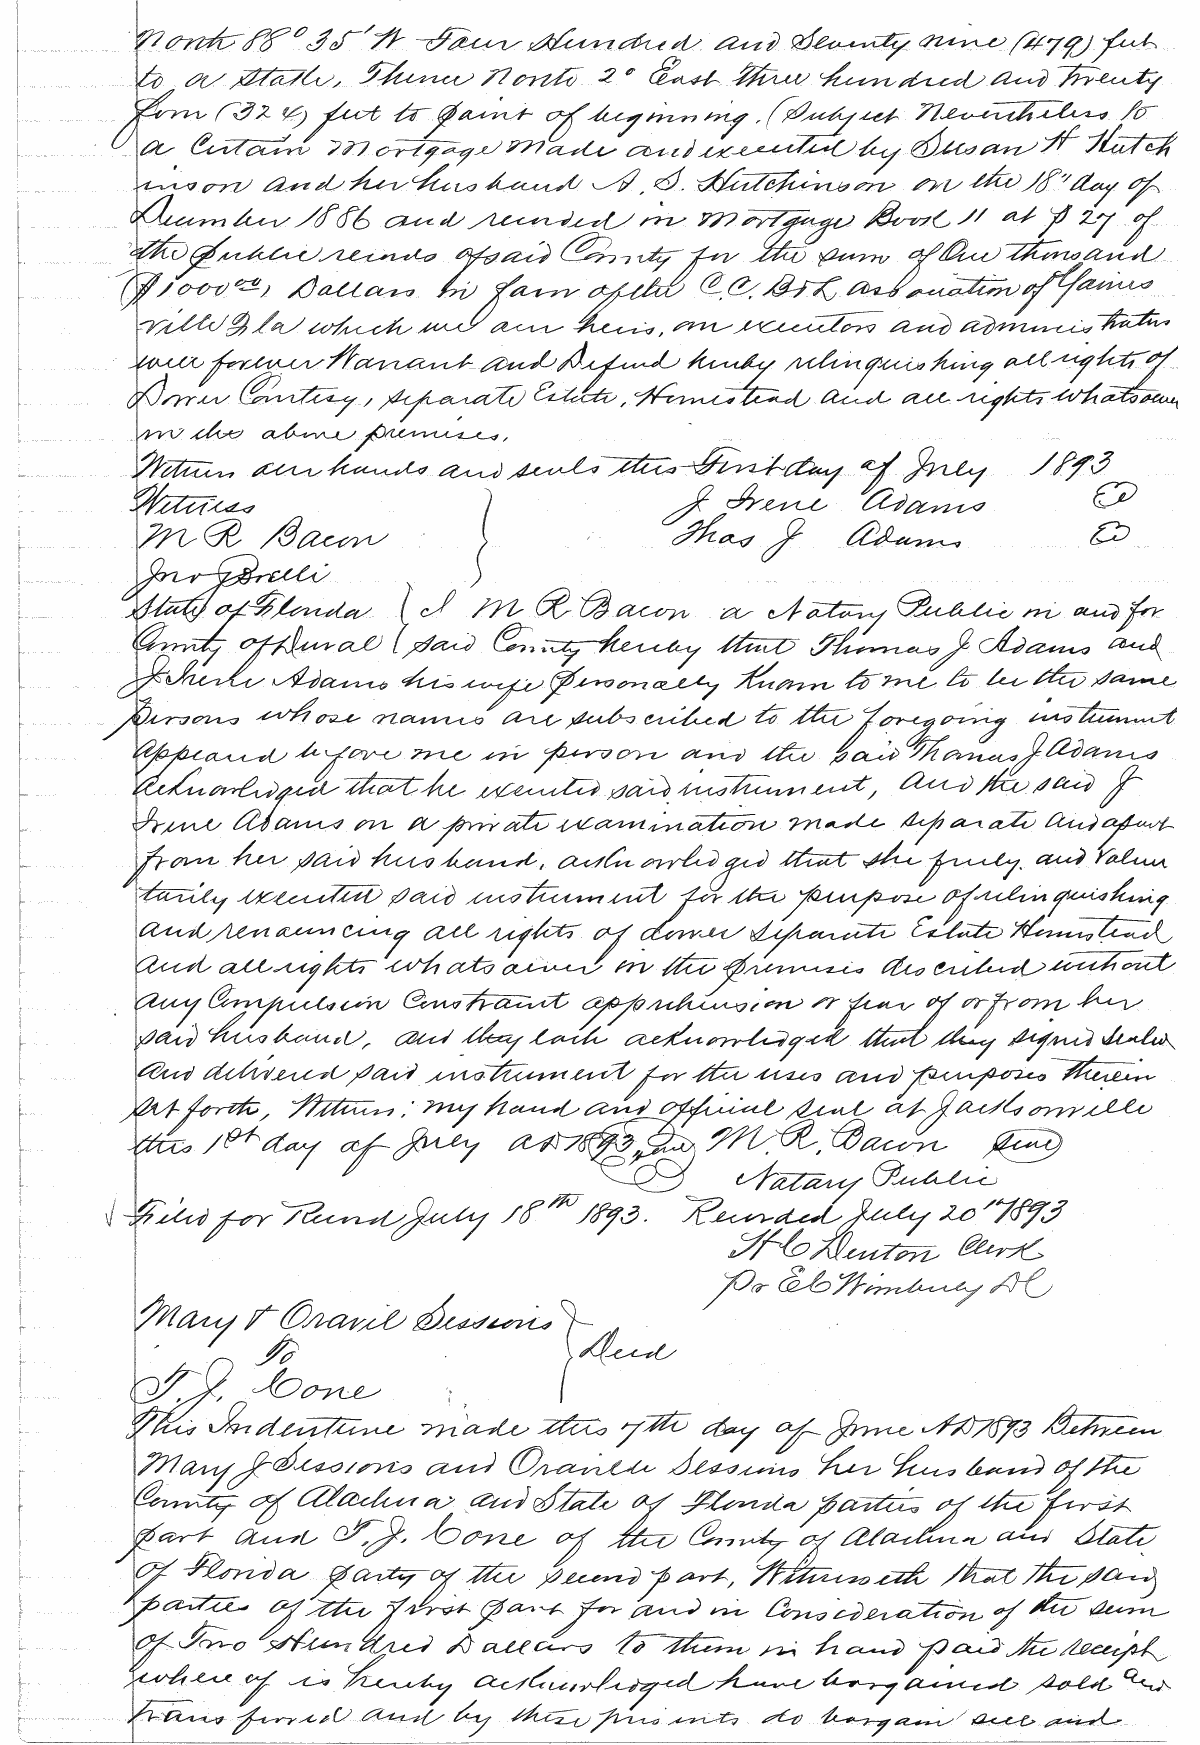 North 88° 35' W Four Hundred and Seventy nine (479) feet
to a Stake, Thence North 2° East three hundred and twenty
four (324) feet to point of beginning. (Subject Nevertheless to
a Certain Mortgage Made and executed by Susan H Hutch
inson and her husband A. S. Hutchinson on the 18" day of
December 1886 and recorded in Mortgage Book 11 at P 27 of
the public records of said County for the sum of One thousand
($1000.00) Dollars in favor of the C. C. B & L association of Gaines
ville Fla which we our heirs, our executors and administrators
will forever Warrant and Defend hereby relinquishing all rights of
Dower Courtesy, separate Estate, Homestead and all rights whatsoever
in the above premises.
Witness our hands and seals this First day of July 1893
Witness J Irene Adams
M R Bacon Thos J Adams
Jno
State of Florida I M R Bacon a Notary Public in and for
County of Duval said County hereby that Thomas J Adams and
J Irene Adams his wife personally known to me to be the same
persons whose names are subscribed to the foregoing instrument
appeared before me in person and the said Thomas J Adams
acknowledged that he executed said instrument, And the said J
Irene Adams on a private examination made separate and apart
from her said husband, acknowledged that she freely and Volun
tarily executed said instrument for the purpose of relinquishing
and renouncing all rights of dower separate Estate Homestead
and all rights whatsoever in the premises described without
any Compulsion Constraint apprehension or fear of or from her
said husband, and they each acknowledged that they signed sealed
and delivered said instrument for the uses and purposes therein
set forth, Witness my hand and official seal at Jacksonville
this 1st day of July AD 1893, M. R. Bacon Seal
Notary Public
Filed for Record July 18th 1893. Recorded July 20th 1893
H C Denton Clerk
Pr E C Wimberly DC
Mary & Oravil Sessions
To Deed
T. J. Cone
This Indenture made this 7th day of June AD 1893 Between
Mary J Sessions and Oraville Sessions her husband of the
County of Alachua and State of Florida parties of the first
part and T. J. Cone of the County of Alachua and State
of Florida party of the second part, Witnesseth that the said
parties of the first part for and in Consideration of the sum
of Two Hundred Dollars to them in hand paid the receipt
where of is hereby acknowledged have bargained sold and
transferred and by these presents do bargain sell and